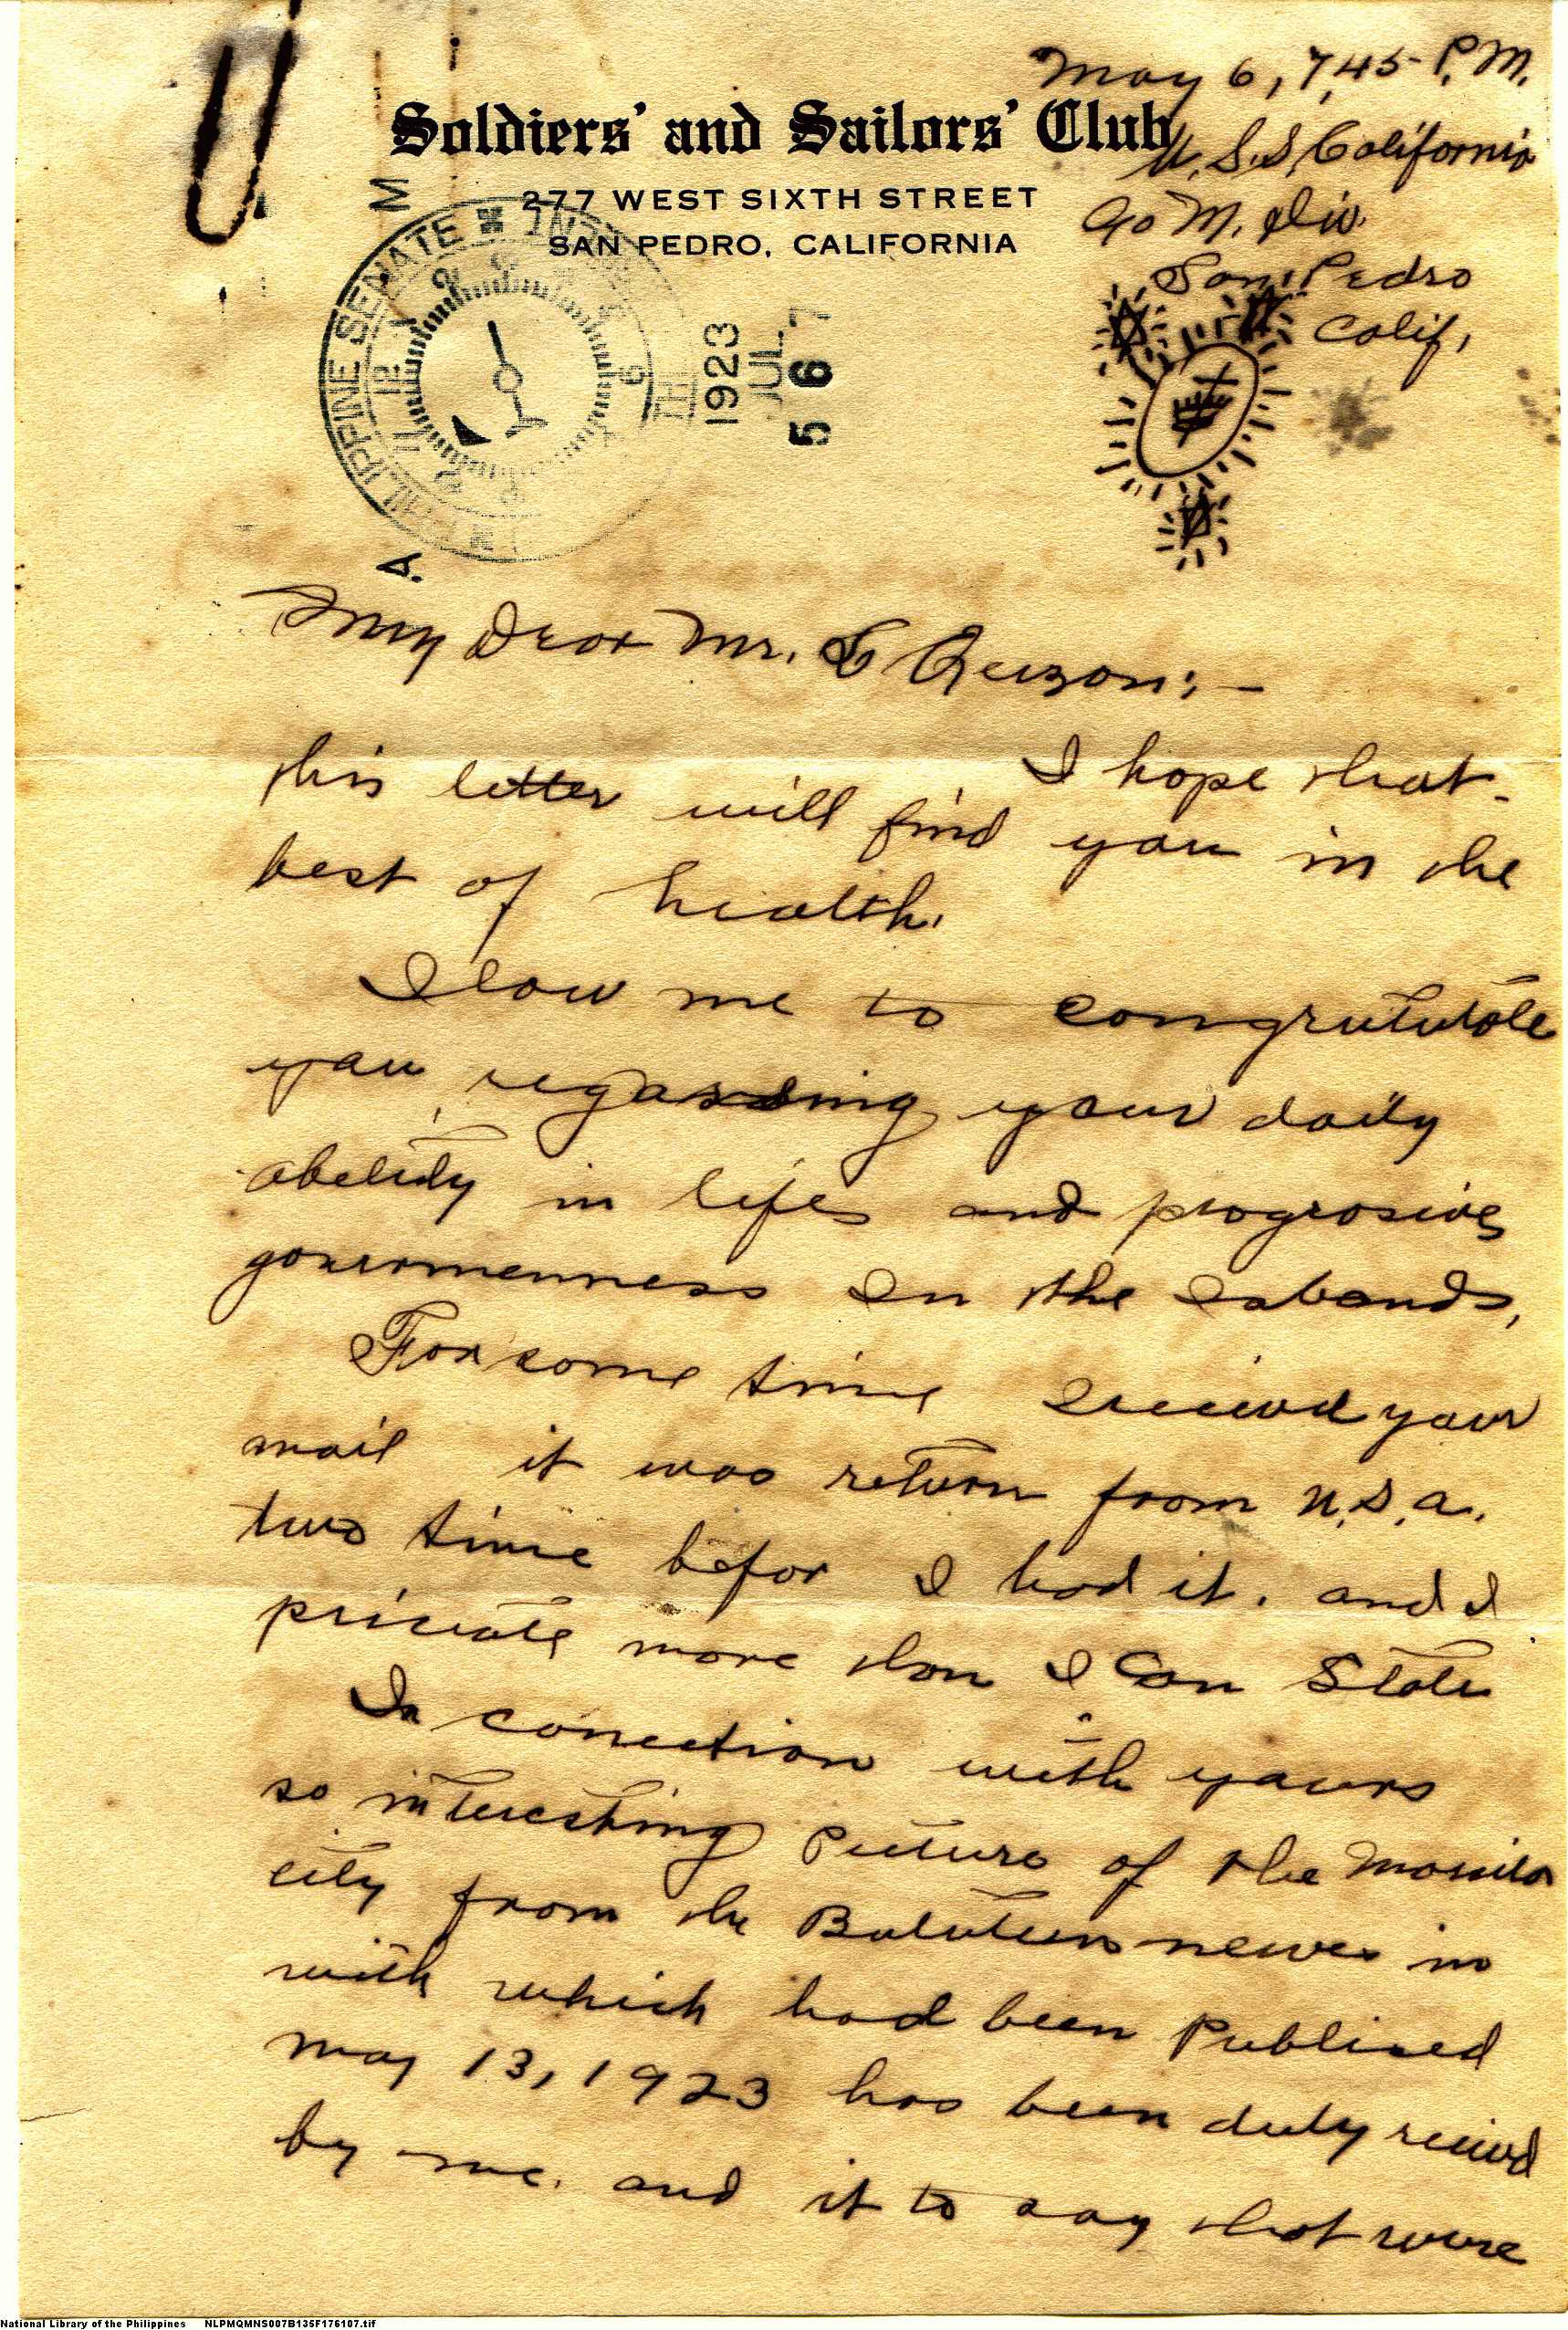 May 6, 7,45 P.M.
Soldiers' and Sailors' Club
U.S.S. California
277 WEST SIXTH STREET
SAN PEDRO, CALIFORNIA
M. Div.
San, Pedro
Calif,
PHILIPPINE SENATE
M
A
1923
JUL 7
567
My Dear Mr. Quezon:-
I hope that
this letter will find you in the
best of health.
Alow me to congrutulate
you regarding your daily
abelity in lifes and progrosive
in the Islands,
For some time I recived your
mail it was return from U.S.A.
two time befor I had it. and I
priviate more than I can State
In conection with yours
so interesting Picture of the Manila
city from the Buletens newes in
with which had been Publised
may 13, 1923 has been duly recived
by me. and it to say that were
National Library of the Philippines NLPMQMNS007B135F176107.tif